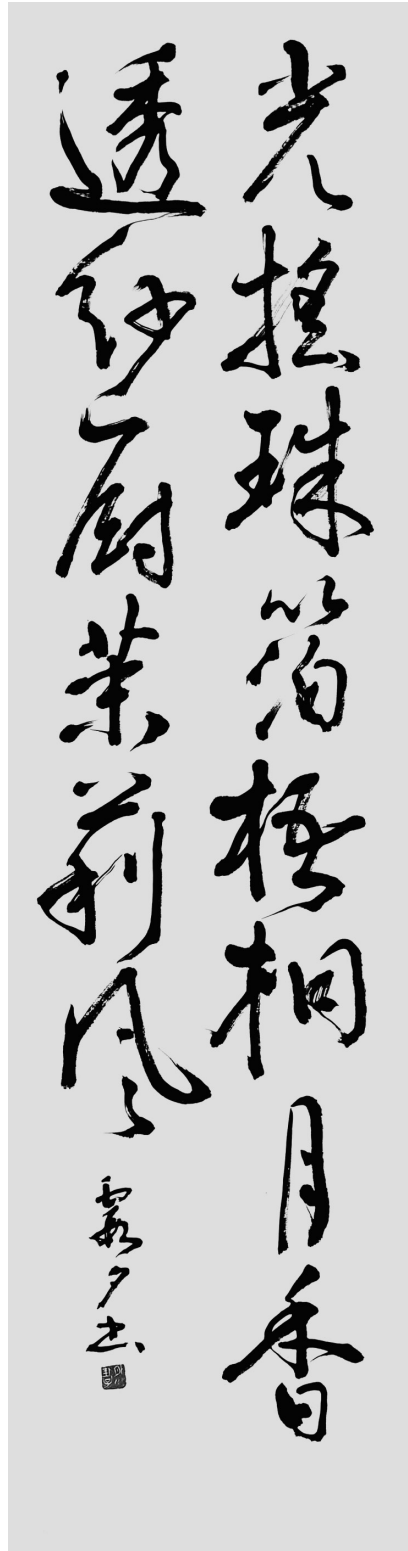 光搖珠箔梧桐月香
透紗厨茉莉風
霞夕書